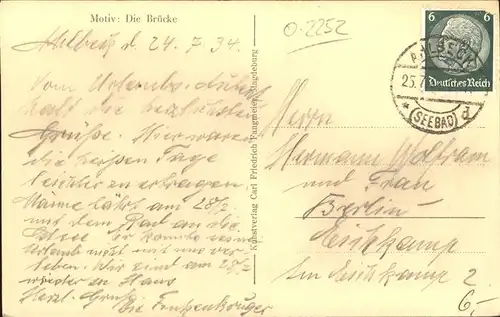 Motiv: Die Brücke
0-2252
Ahlbeck d. 24.7.34.
Vom Urlaubs-Aufent
halt die herzlichsten
Grüße. Hier waren
die heißen Tage
leichter zu ertragen.
fährt am 28/7
mit dem Rad an die
Ostsee. Er konnte seinen
Urlaub nicht mit uns ver
leben. Wir sind am 28/7
wieder zu Haus
Herzl. Gruß
Die
Kunstverlag Carl Friedrich Fangmeier, Magdeburg
6 6
Deutsches Reich
AHLBECK
25.7
* (SEEBAD) d
Herrn
Hermann Wolfram
und Frau
Berlin
Eichkamp
Im Eichkamp 2
6,-